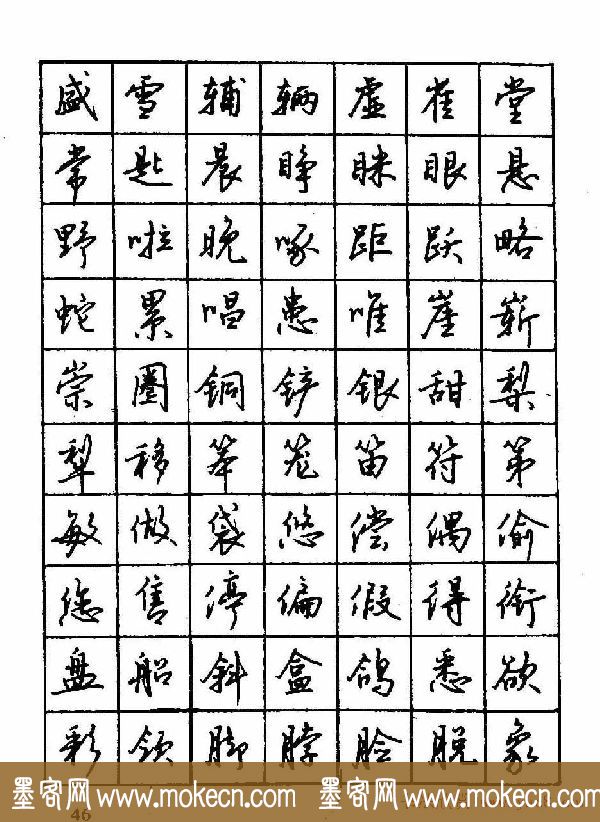 盛雪辅辆虚雀堂
常匙晨睁眯眼悬
野啦晚啄距跃略
蛇累唱患唯崖崭
崇圈铜铲银甜梨
犁移笨笼笛符第
敏做袋悠偿偶偷
您售停偏假得衔
盘船斜盒鸽悉欲
彩领脚脖脸脱象
墨客网 www.mokecn.com 墨客网 www.mokecn.com
46